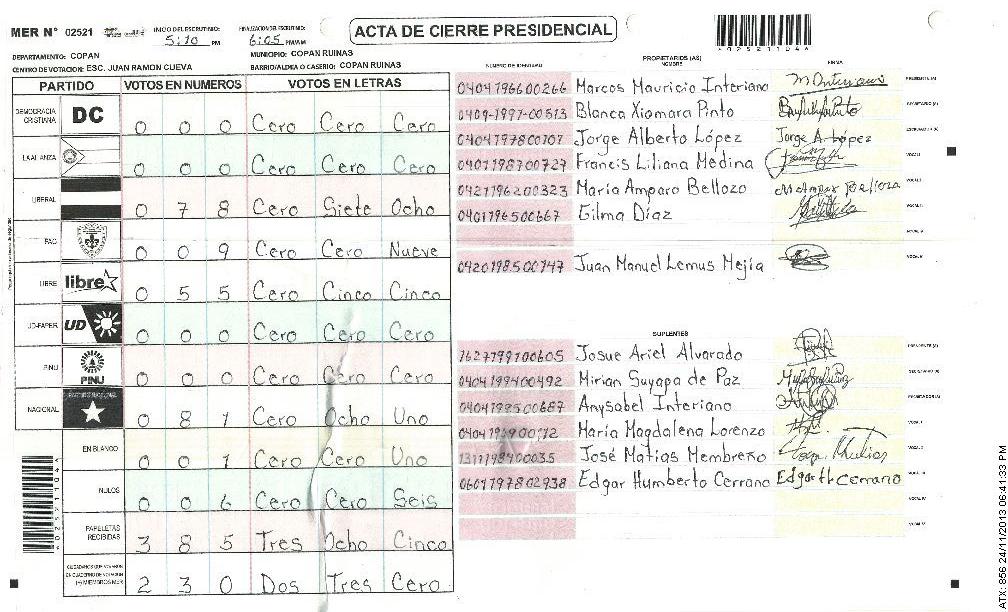 MER N° 02521
INICIO DEL ESCRUTINIO: 5:10 PM
FINALIZACION DEL ESCRUTINIO: 6:05 PM/AM
ACTA DE CIERRE PRESIDENCIAL
DEPARTAMENTO: COPAN
MUNICIPIO: COPAN RUINAS
CENTRO DE VOTACION: ESC. JUAN RAMON CUEVA
BARRIO/ALDEA O CASERIO: COPAN RUINAS
PARTIDO VOTOS EN NUMEROS VOTOS EN LETRAS
DEMOCRACIA CRISTIANA DC 0 0 0 Cero Cero Cero
LA ALIANZA 0 0 0 Cero Cero Cero
LIBERAL 0 7 8 Cero Siete Ocho
PAC 0 0 9 Cero Cero Nueve
LIBRE libre 0 5 5 Cero Cinco Cinco
UD-FAPER UD 0 0 0 Cero Cero Cero
PINU PINU 0 0 0 Cero Cero Cero
NACIONAL 0 8 1 Cero Ocho Uno
EN BLANCO 0 0 1 Cero Cero Uno
NULOS 0 0 6 Cero Cero Seis
PAPELETAS RECIBIDAS 3 8 5 Tres Ocho Cinco
CIUDADANOS QUE VOTARON EN CUADERNO DE VOTACION (+) MIEMBROS MER 2 3 0 Dos Tres Cero
PROPIETARIOS (AS)
NUMERO DE IDENTIDAD NOMBRE FIRMA
0404196600266 Marcos Mauricio Interiano PRESIDENTE (A)
0409-1997-00513 Blanca Xiomara Pinto SECRETARIO (A)
0404197800107 Jorge Alberto López Jorge A. López ESCRUTADOR (A)
0401198700727 Francis Liliana Medina VOCAL I
0421196200323 María Amparo Bellozo VOCAL II
0401196500667 Gilma Díaz VOCAL III
VOCAL IV
0420198500947 Juan Manuel Lemus Mejía VOCAL V
SUPLENTES
1627199100605 Josue Ariel Alvarado PRESIDENTE (A)
0404199400492 Mirian Suyapa de Paz SECRETARIO (A)
0404199500687 Anysabel Interiano ESCRUTADOR (A)
María Magdalena Lorenzo VOCAL I
1311198400035 José Matías Membreño VOCAL II
0601197802938 Edgar Humberto Cerrano Edgar H Cerrano VOCAL III
VOCAL IV
VOCAL V
ATX: 856 24/11/2013 06:41:33 PM